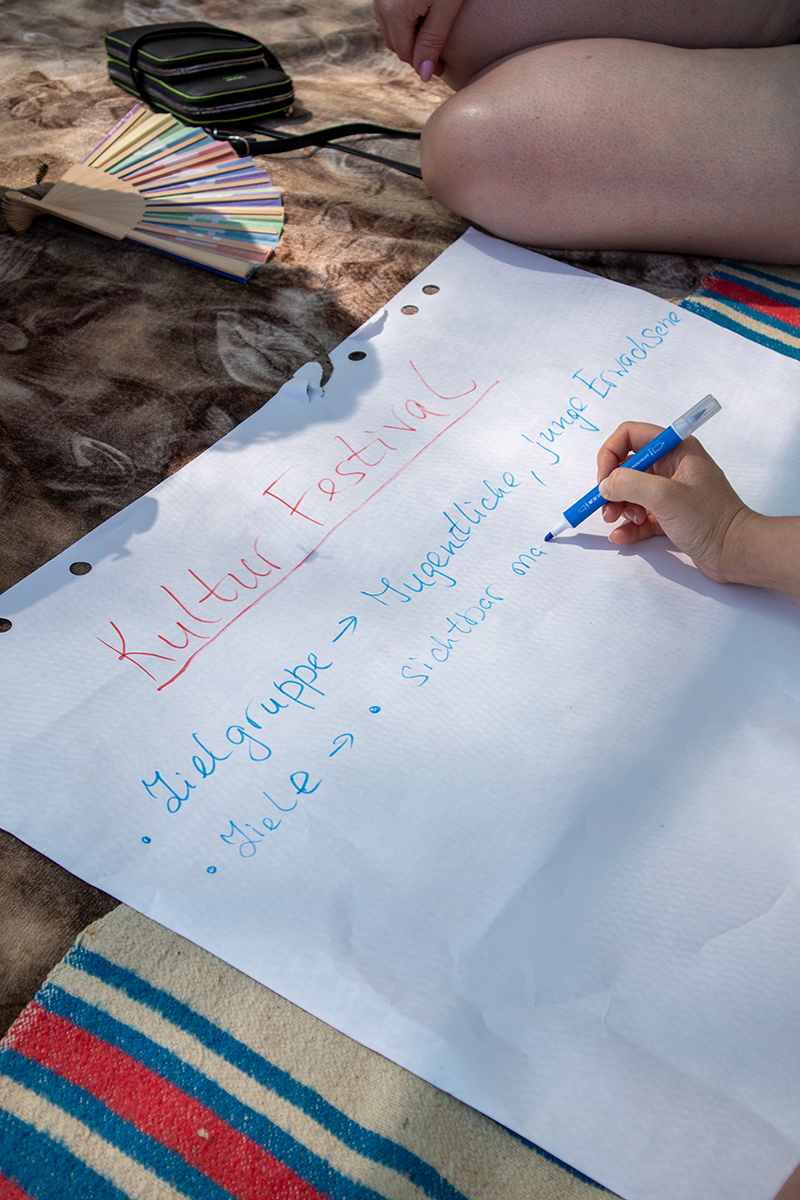 Kultur Festival
• Zielgruppe → Jugendliche, junge Erwachsene
• Ziele → • sichtbar ma